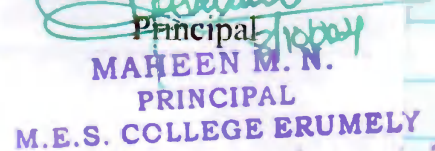 Principal
MAHEEN M. N.
PRINCIPAL
M.E.S. COLLEGE ERUMELY